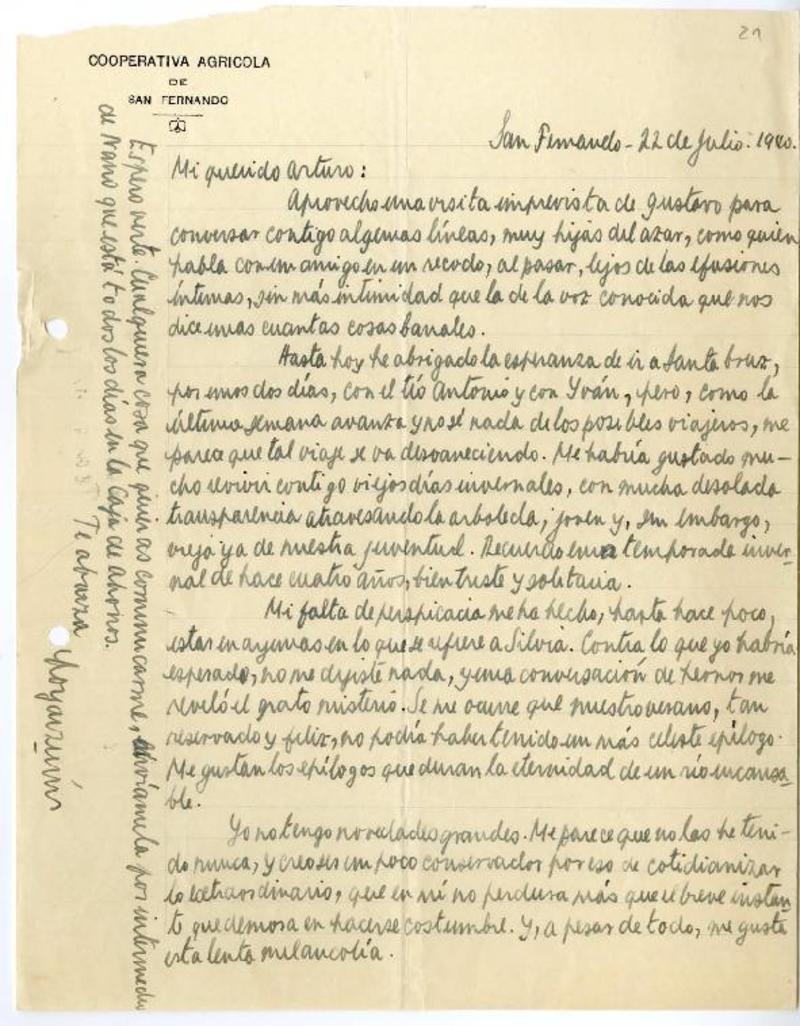 21
COOPERATIVA AGRICOLA
DE
SAN FERNANDO
San Fernando - 22 de Julio. 1940.
Mi querido Arturo:
Aprovecho una visita imprevista de Gustavo para
conversar contigo algunas líneas, muy hijas del azar, como quien
habla con un amigo en un recodo, al pasar, lejos de las efusiones
íntimas, sin más intimidad que la de la voz conocida que nos
dice unas cuantas cosas banales.
Hasta hoy he abrigado la esperanza de ir a Santa Cruz,
por unos dos días, con el tío Antonio y con Iván, pero, como la
última semana avanza y no sé nada de los posibles viajeros, me
parece que tal viaje se va desvaneciendo. Me habría gustado mu-
cho revivir contigo viejos días invernales, con mucha desolada
transparencia atravesando la arboleda, joven y, sin embargo,
vieja ya de nuestra juventud. Recuerdo una temporada inver-
nal de hace cuatro años, bien triste y solitaria.
Mi falta de perspicacia me ha hecho, hasta hace poco,
estar en ayunas en lo que se refiere a Silvia. Contra lo que yo habría
esperado, no me dijiste nada, y una conversación de
reveló el grato misterio. Se me ocurre que nuestro verano, tan
reservado y feliz, no podía haber tenido un más celeste epílogo.
Me gustan los epílogos que duran la eternidad de un río incansa-
ble.
Yo no tengo novedades grandes. Me parece que no las he teni-
do nunca, y creo ser un poco conservador por eso de cotidianizar
lo extraordinario, que en mí no perdura más que el breve instan-
te que demora en hacerse costumbre. Y, a pesar de todo, me gusta
esta lenta melancolía.
Espero verte. Cualquiera cosa que quieras comunicarme, envíamela por intermedio
de Nano que está todos los días en la Caja de ahorros.
Te abraza
Oyarzún